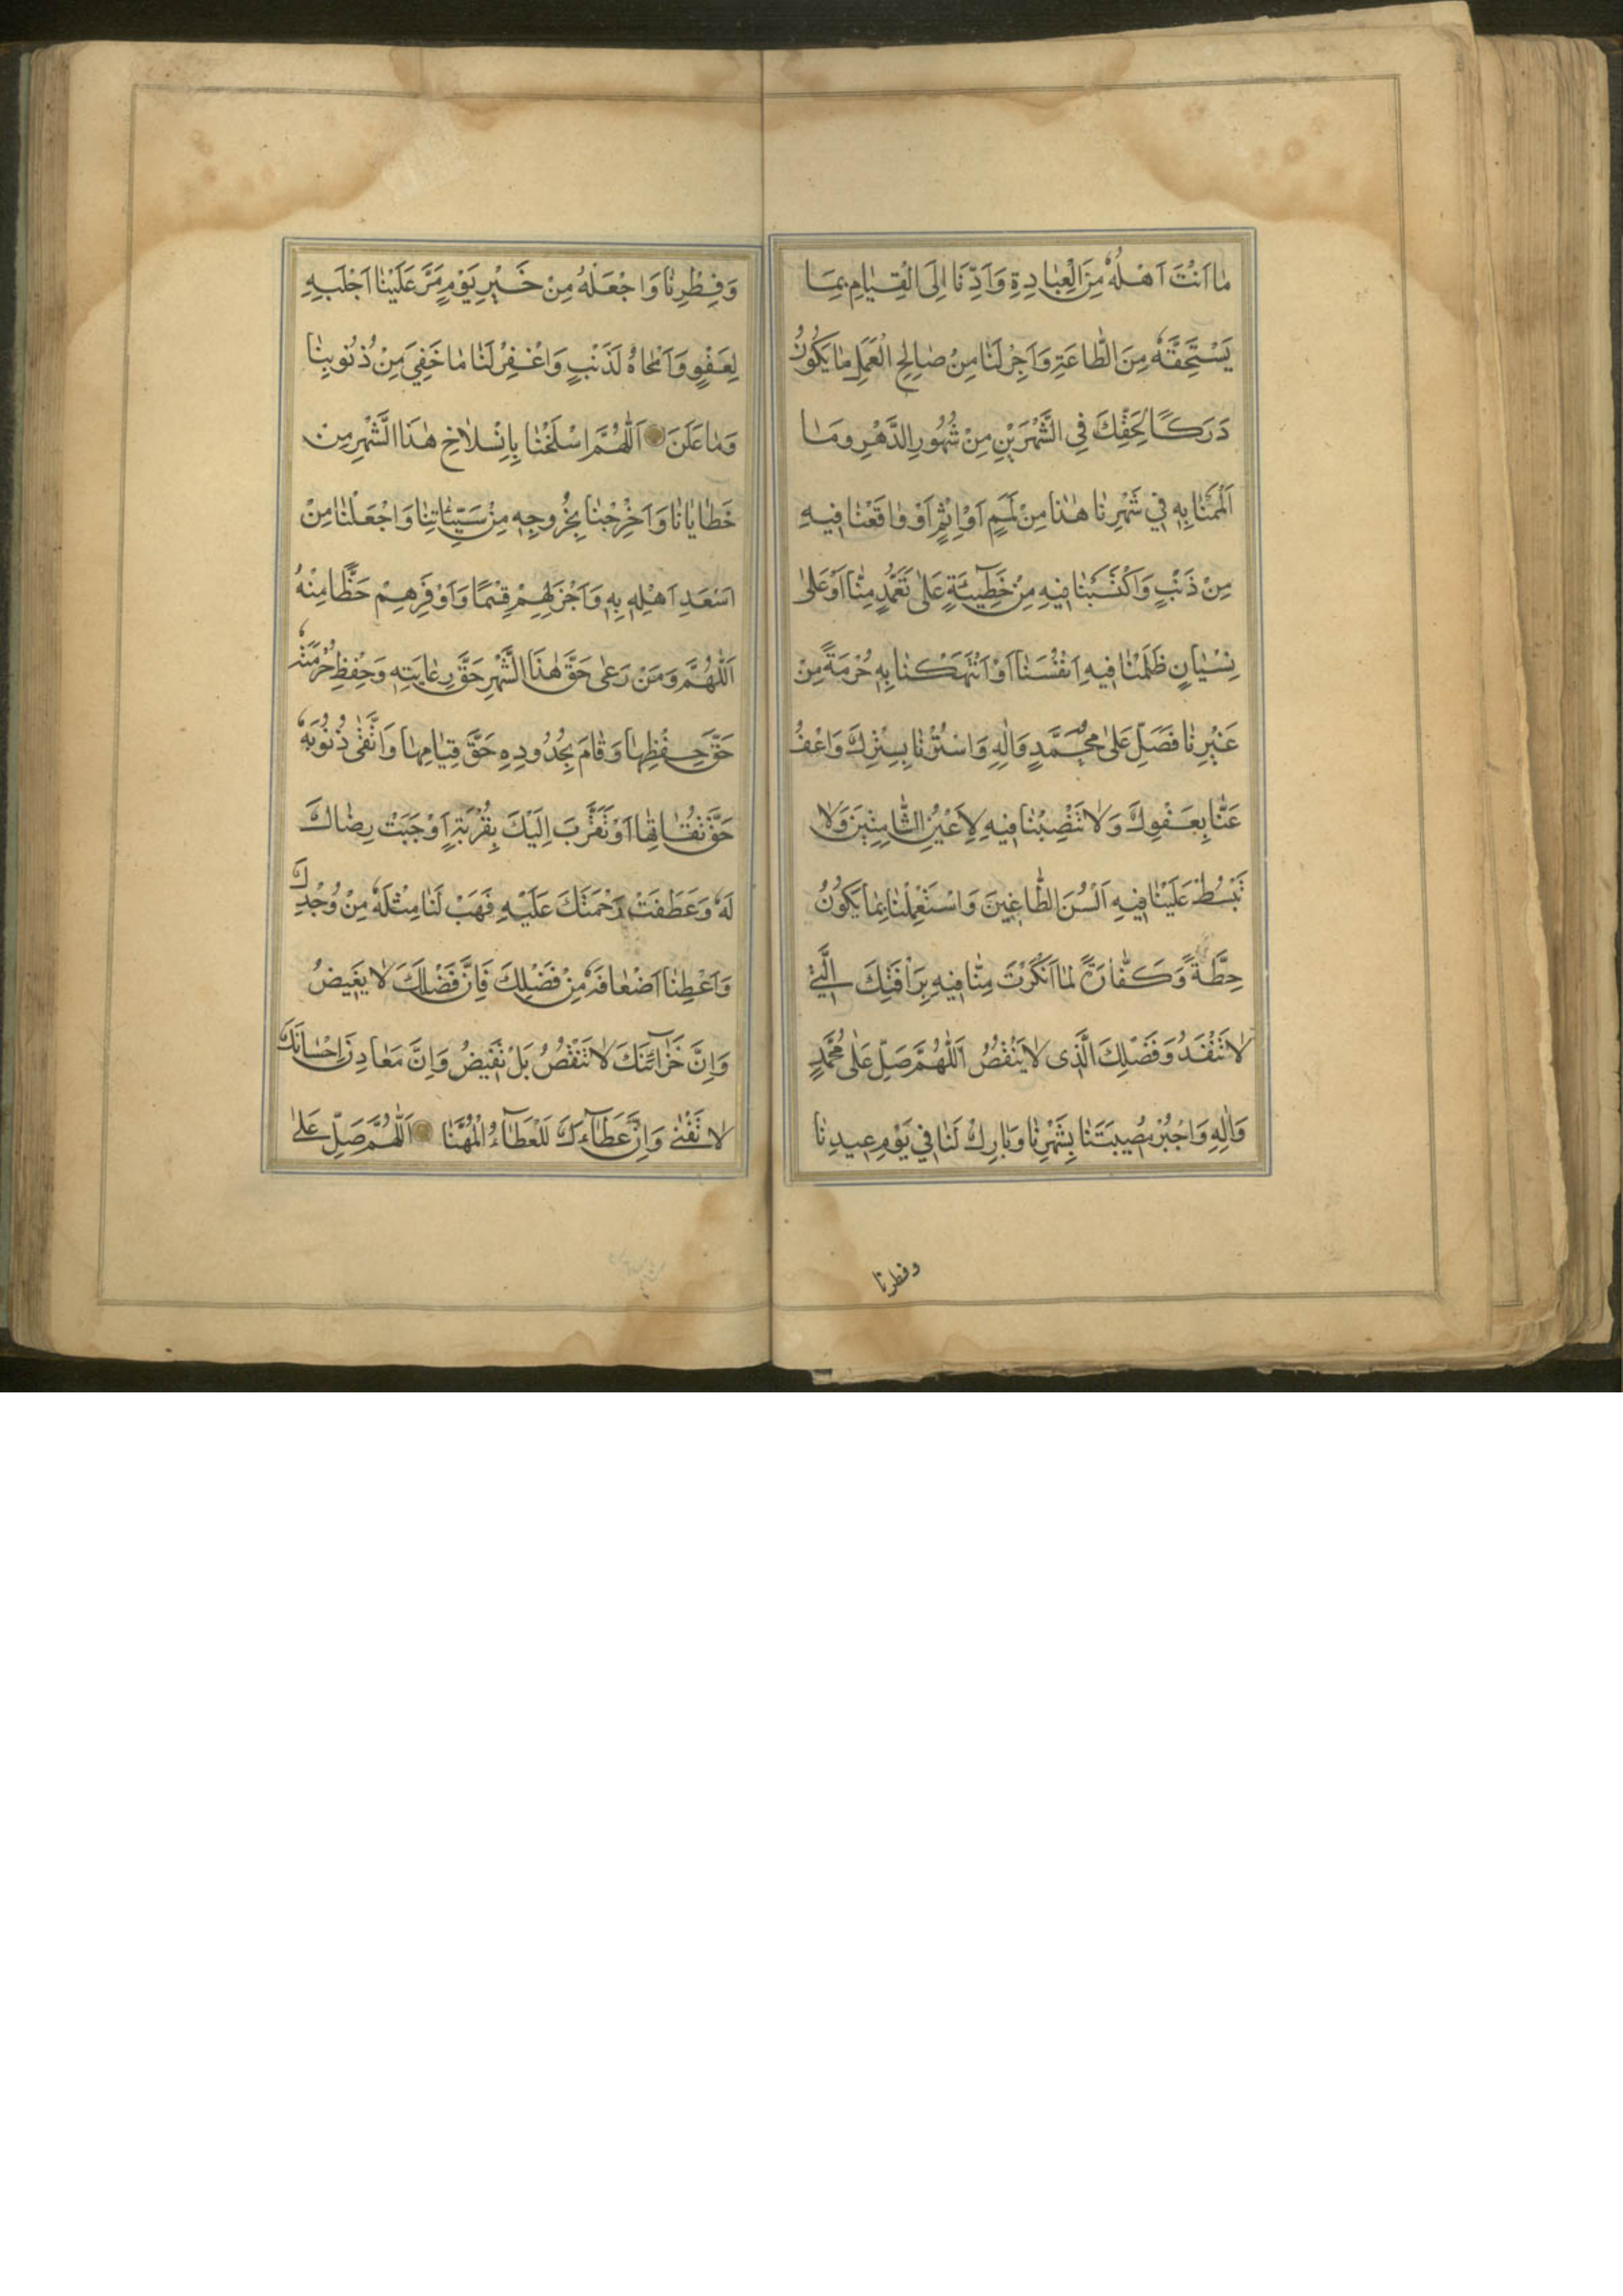 مٰا اَنْتَ اَهْلُهُ مِنَ الْعِبٰادِةِ وَاَدِّنَا اِلَى الْقِيٰامِ بِمَا
يَسْتَحِقَّهُ مِنَ الطّٰاعَةِ وَاَجِرْ لَنٰا مِنْ صٰالِحِ الْعَمَلِ مٰا يَكُونُ
دَرَكًا لِحَقِّكَ فِي الشَّهْرَيْنِ مِنْ شُهُورِ الدَّهْرِ وَمٰا
اَلْمَمْنٰا بِهِ فِي شَهْرِنٰا هٰذٰا مِنْ لَمَمٍ اَوْ اِثْمٍ اَوْ وٰاقَعْنٰا فِيهِ
مِنْ ذَنْبٍ وَاكْتَسَبْنٰا فِيهِ مِنْ خَطِيئَةٍ عَلىٰ تَعَمُّدٍ مِنّٰا اَوْ عَلىٰ
نِسْيٰانٍ ظَلَمْنٰا فِيهِ اَنْفُسَنٰا اَوْ اَنْتَهَكْنٰا بِهِ حُرْمَةً مِنْ
غَيْرِنٰا فَصَلِّ عَلىٰ مُحَمَّدٍ وَاٰلِهِ وَاسْتُرْنٰا بِسِتْرِكَ وَاعْفُ
عَنّٰا بِعَفْوِكَ وَلٰا تَنْصِبْنٰا فِيهِ لِاَعْيُنِ الشّٰامِتِينَ وَلٰا
تَبْسُطْ عَلَيْنٰا فِيهِ اَلْسُنَ الطّٰاغِينَ وَاسْتَعْمِلْنٰا بِمٰا يَكُونُ
حِطَّةً وَكَفّٰارَةً لِمٰا اَنْكَرْتَ مِنّٰا فِيهِ بِرَاْفَتِكَ الَّتِي
لٰا تَنْفَدُ وَفَضْلِكَ الَّذِى لٰا يَنْقُصُ اَللّٰهُمَّ صَلِّ عَلىٰ مُحَمَّدٍ
وَاٰلِهِ وَاجْبُرْ مُصِيبَتَنٰا بِشَهْرِنٰا وَبٰارِكْ لَنٰا فِي يَوْمِ عِيدِنٰا
وفطرنا
وَفِطْرِنٰا وَاجْعَلْهُ مِنْ خَيْرِ يَوْمٍ مَرَّ عَلَيْنٰا اَجْلَبِهِ
لِعَفْوٍ وَاَمْحٰاهُ لَذَنْبٍ وَاغْفِرْ لَنٰا مٰا خَفِيَ مِنْ ذُنُوبِنٰا
وَمٰا عَلَنَ اَللّٰهُمَّ اسْلَخْنٰا بِانْسِلٰاخِ هٰذَا الشَّهْرِ مِنْ
خَطٰايٰانٰا وَاَخْرِجْنٰا بِخُرُوجِهِ مِنْ سَيِّئٰاتِنٰا وَاجْعَلْنٰا مِنْ
اَسْعَدِ اَهْلِهِ بِهِ وَاَجْزَلِهِمْ قِسْمًا وَاَوْفَرِهِمْ حَظًّا مِنْهُ
اَللّٰهُمَّ وَمَنْ رَعىٰ حَقَّ هٰذَا الشَّهْرِ حَقَّ رِعٰايَتِهِ وَحِفْظِ حُرْمَتَهُ
حَقَّ حِفْظِهٰا وَقٰامَ بِحُدُودِهِ حَقَّ قِيٰامِهٰا وَاتَّقىٰ ذُنُوبَهُ
حَقَّ تُقٰاتِهٰا اَوْ تَقَرَّبَ اِلَيْكَ بِقُرْبَةٍ اَوْجَبَتْ رِضٰاكَ
لَهُ وَعَطَفَتْ رَحْمَتَكَ عَلَيْهِ فَهَبْ لَنٰا مِثْلَهُ مِنْ وُجْدِكَ
وَاَعْطِنٰا اَضْعٰافَهُ مِنْ فَضْلِكَ فَاِنَّ فَضْلَكَ لٰا يَغِيضُ
وَاِنَّ خَزٰائِنَكَ لٰا تَنْقُصُ بَلْ تَفِيضُ وَاِنَّ مَعٰادِنَ اِحْسٰانِكَ
لٰا تَفْنىٰ وَاِنَّ عَطٰاءَكَ لَلْعَطٰاءُ الْمُهَنّٰا اَللّٰهُمَّ صَلِّ عَلىٰ